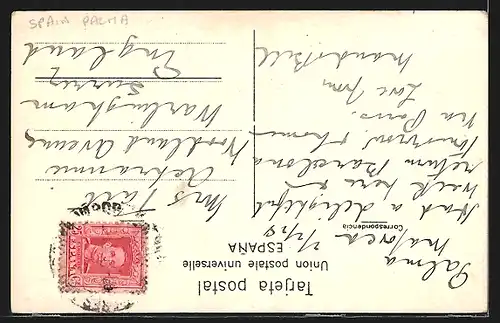 SPAIN PALMA
Tarjeta postal
Union postale universelle
ESPAÑA
Correspondencia
Palma
Majorca
Had a delightful
week here and
return Barcelona
tomorrow & home
via Paris.
Love from
Mrs
Woodland Avenue
Warlingham
Surrey
England